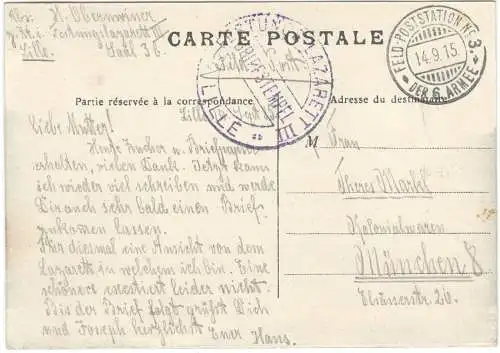 Abs. H. Obernwiner
z. Zt. i. Festungslazarett III
Lille. Saal 36.
CARTE POSTALE
FESTUNGSLAZARETT III
LILLE
BRIEFSTEMPEL
FELD-POSTSTATION No 3
14.9.15.
DER 6. ARMEE
Partie réservée à la correspondance
Adresse du destinataire
Lille
Liebe Mutter!
Hefte Zucker u. Briefpapier
erhalten, vielen Dank. Jetzt kann
ich wieder viel schreiben und werde
Dir auch sehr bald einen Brief
zukommen lassen.
Für diesmal eine Ansicht von dem
Lazarett in welchem ich bin. Eine
schönere existiert leider nicht.
Bis der Brief folgt grüßt Dich
und Joseph herzlichst Euer Hans.
M Frau
Theres Markl
Kolonialwaren
München 8
Elsässerstr. 26.